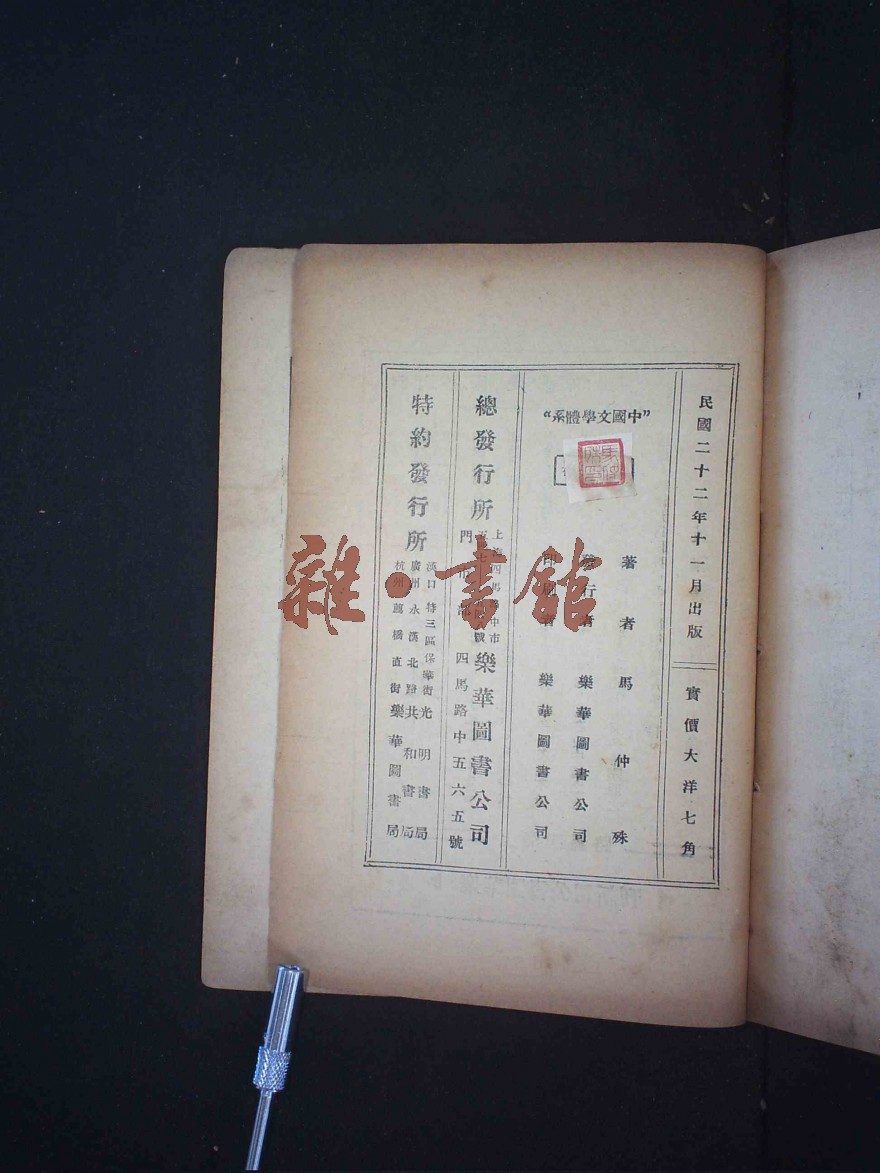 民國二十二年十一月出版
實價大洋七角
“中國文學體系”
著者 馬仲殊
發行者 樂華圖書公司
印刷者 樂華圖書公司
總發行所
上海四馬路中市
樂華圖書公司
門市部 四馬路中五六五號
特約發行所
漢口 特三區保華街光明書局
廣州 永漢北路共和書局
杭州 薦橋直街樂華圖書局
雜·書館